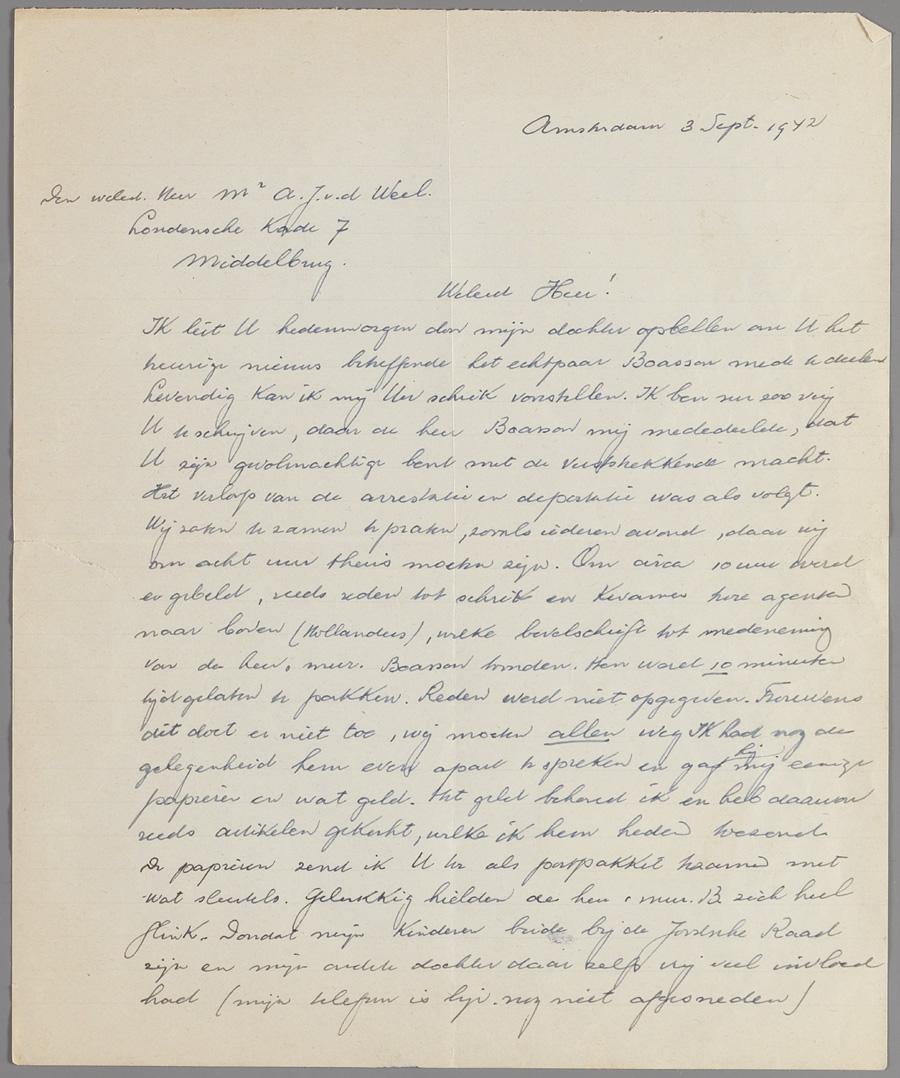 Amsterdam 3 Sept. 1942
Den weled. Heer Mr A. J. v. d Weel.
Londensche Kade 7
Middelburg.
Weled Heer!
Ik liet U hedenmorgen door mijn dochter opbellen om U het
treurige nieuws betreffende het echtpaar Boasson mede te deelen
Levendig kan ik mij Uw schrik voorstellen. Ik ben nu zoo vrij
U te schrijven, daar de heer Boasson mij mededeelde, dat
U zijn gevolmachtige bent met de verstrekkende macht.
Het verloop van de arrestatie en deportatie was als volgt.
Wij zaten te zamen te praten, zooals iederen avond, daar wij
om acht uur thuis moeten zijn. Om circa 10 uur werd
er gebeld, reeds reden tot schrik en kwamen twee agenten
naar boven (Hollanders), welke bevelschrift tot medeneming
van de heer, mevr. Boasson toonden. Hen werd 10 minuten
tijd gelaten te pakken. Reden werd niet opgegeven. Trouwens
dit doet er niet toe, wij moeten allen weg. Ik had nog de
gelegenheid hem even apart te spreken en gaf hij mij eenige
papieren en wat geld. Het geld behoud ik en heb daarvan
reeds artikelen gekocht, welke ik hem heden toezond
De papieren zend ik U te als postpakket tezamen met
wat sleutels. Gelukkig hielden de heer & mevr. B. zich heel
flink. Doordat mijn kinderen beide bij de Joodsche Raad
zijn en mijn oudste dochter daar zelfs vrij veel invloed
had (mijn telefoon is bijv. nog niet afgesneden)